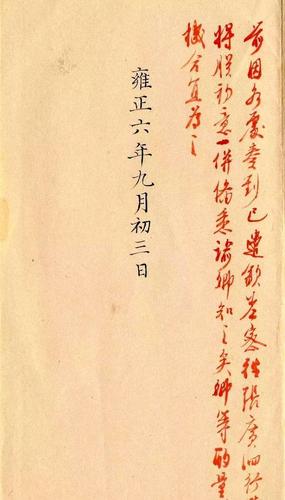 前因各處奏到已遣欽差密往張廣泗行
将朕訓意一併備悉諭卿知之矣卿等酌量
機合宜為之
雍正六年九月初三日